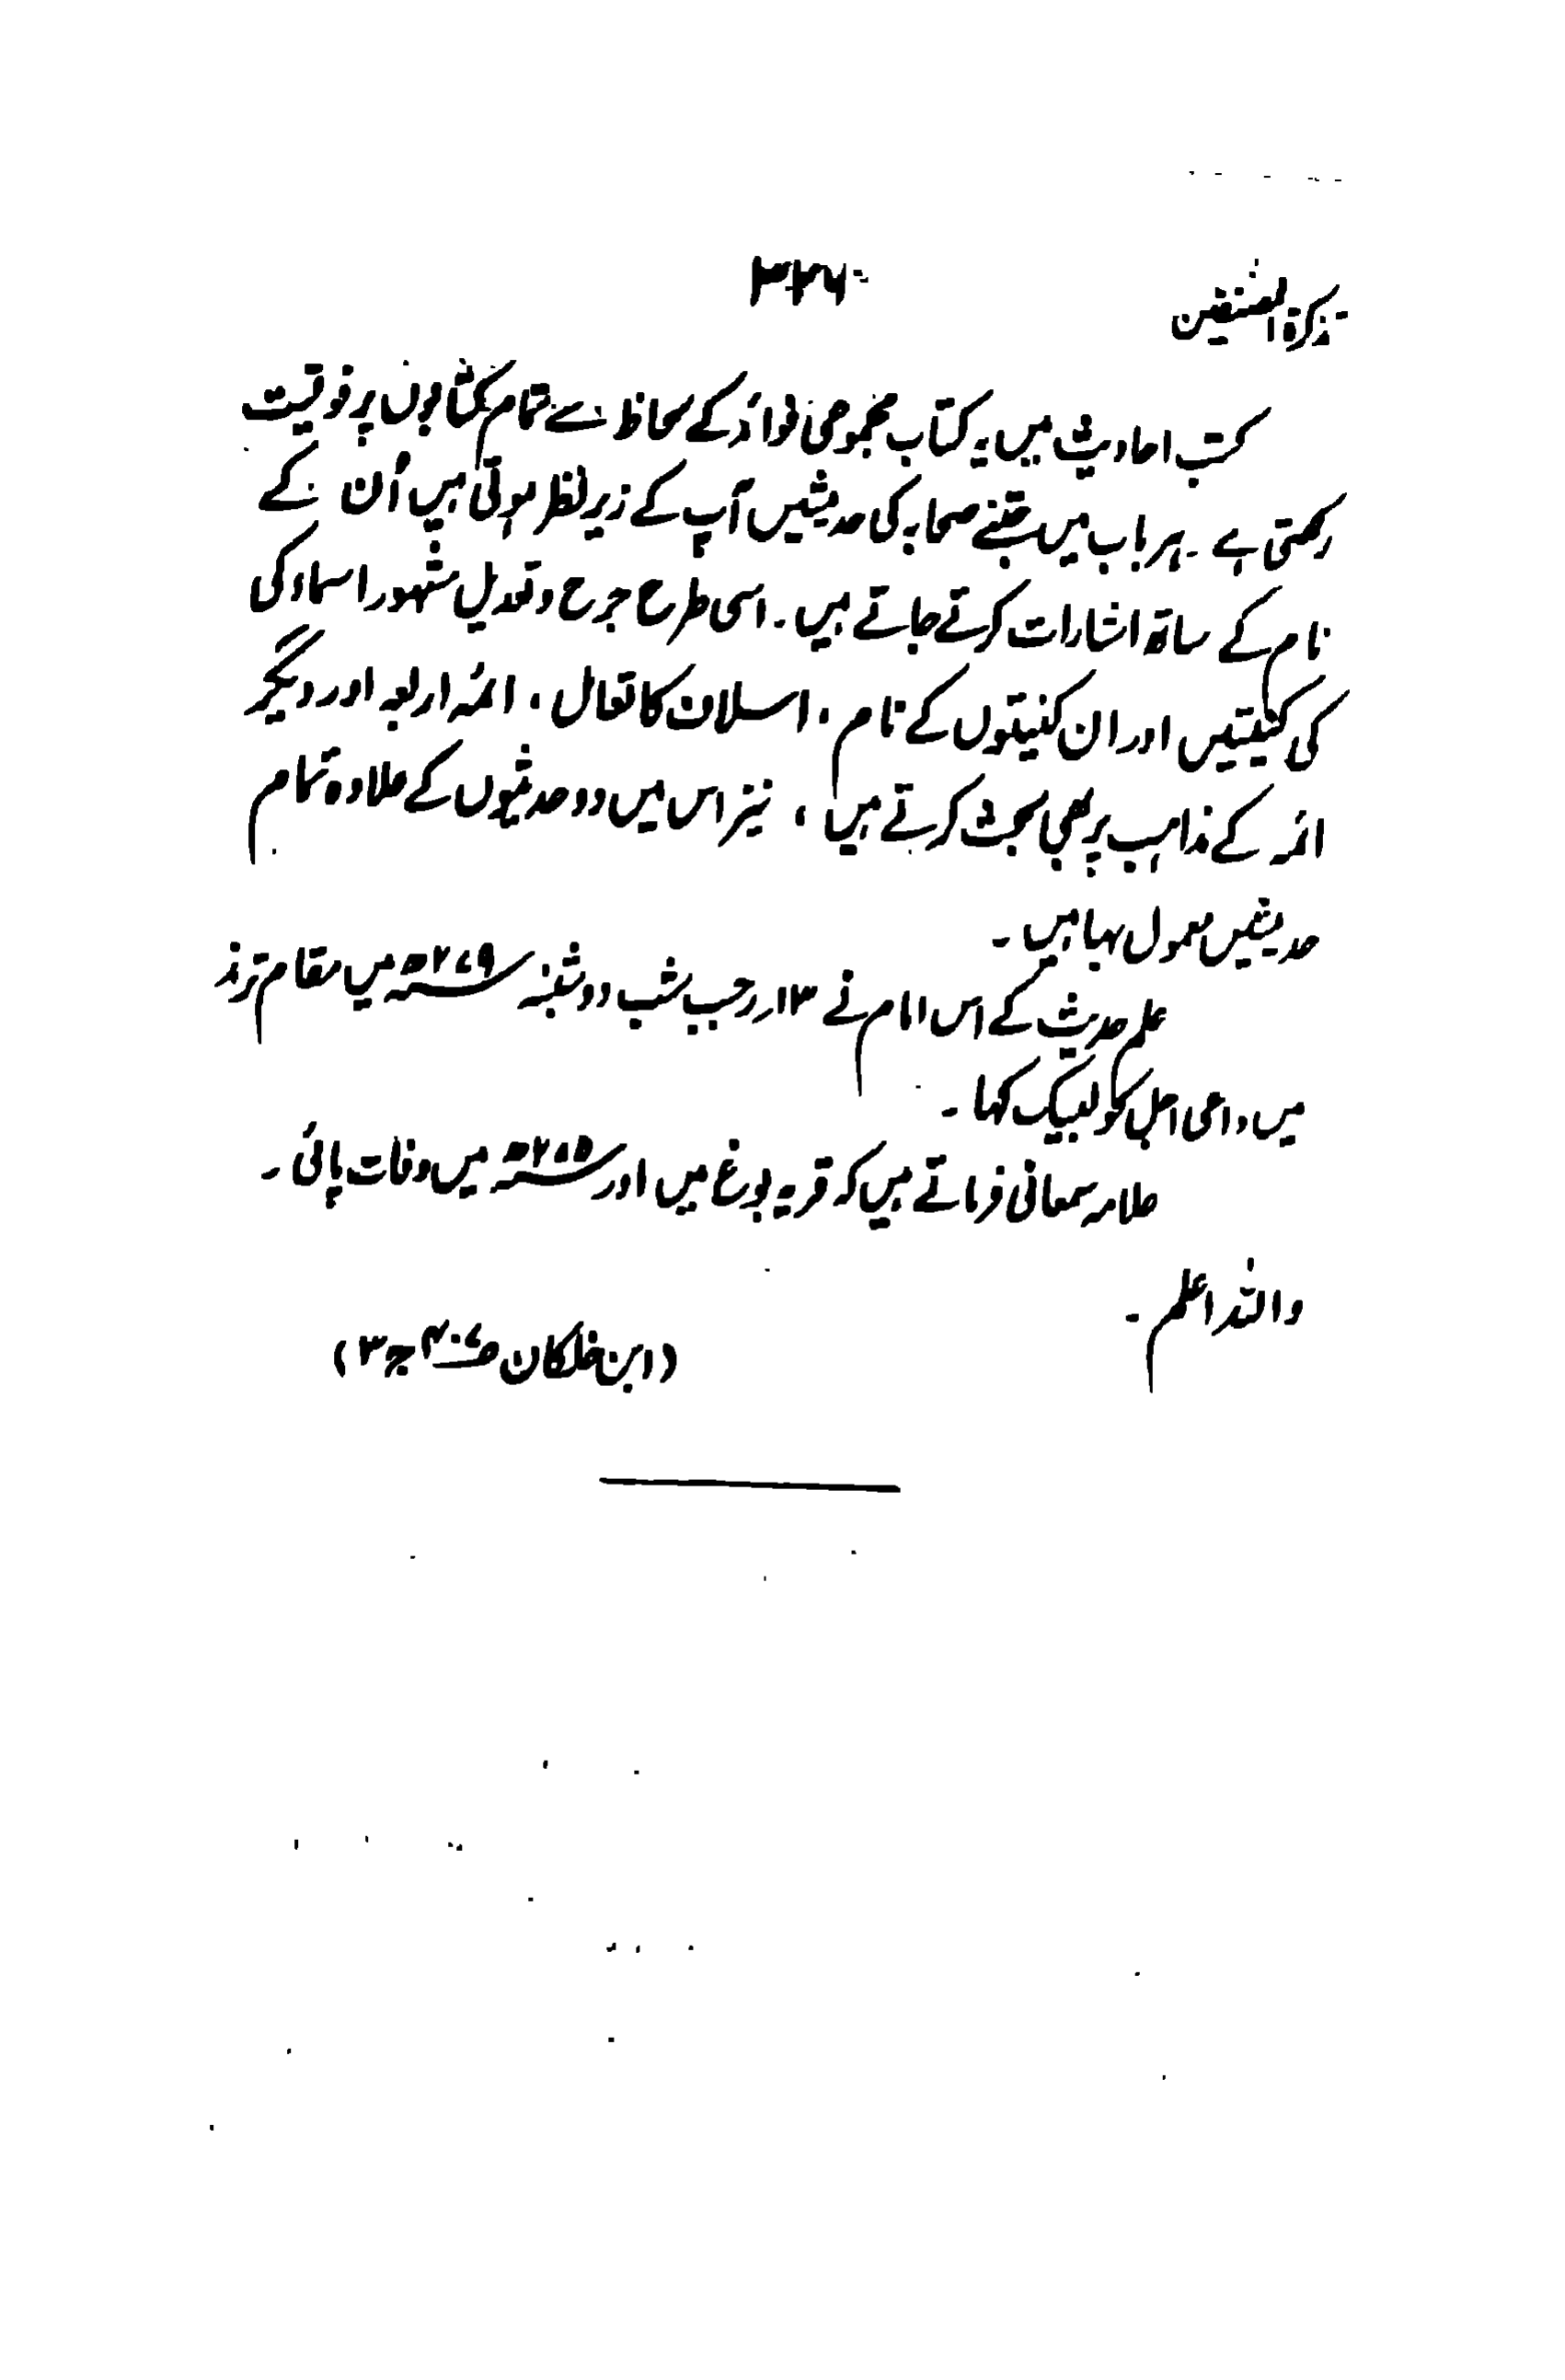 تذکرۃ المصنفین
۳۴۶
کتب احادیث میں یہ کتاب مجموعی فوائد کے لحاظ سے تمام کتابوں پر فوقیت
رکھتی ہے ۔ ہر باب میں جتنے صحابہ کی حدیثیں آپ کے زیر نظر ہوتی ہیں اُن کے
نام کے ساتھ اشارات کرتے جاتے ہیں ۔ اسی طرح جرح و تعدیل مشہور اسماء کی
کی کنیتیں اور ان کنیتوں کے نام ، اسلاف کا تعامل ، ائمہ اربعہ اور دیگر
ائمہ کے مذاہب پر بھی بحث کرتے ہیں ، نیز اس میں دو حدیثوں کے علاوہ تمام
حدیثیں معمول بہا ہیں ۔
علم حدیث کے اس امام نے ۱۳ رجب شب دوشنبہ ۲۷۹ھ میں مقام ترمذ
میں داعی اجل کو لبیک کہا ۔
علامہ سمعانی فرماتے ہیں کہ قریہ بورغ میں اور ۲۷۵ھ میں وفات پائی ۔
واللہ اعلم ۔
(ابن خلکان ص۴۰۷ ج ۳)